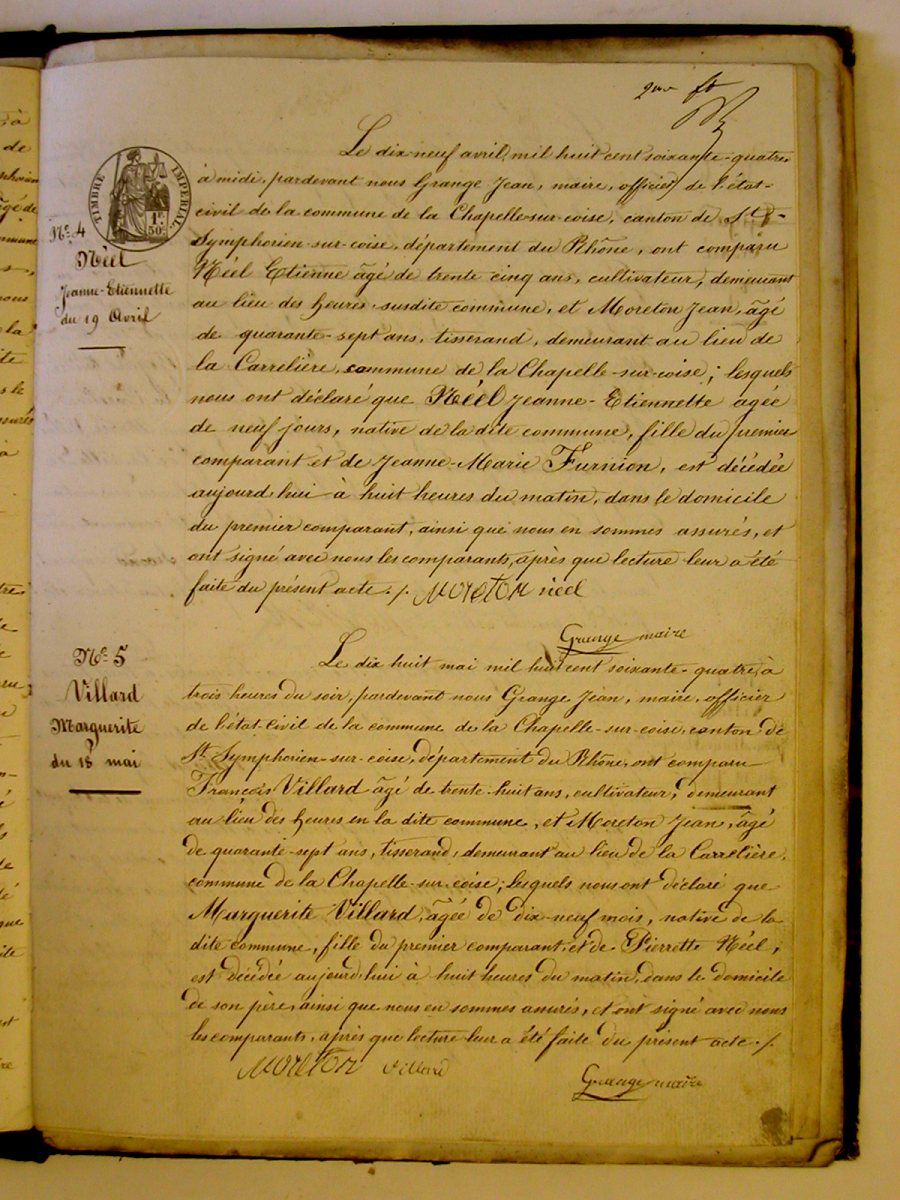 Le dix neuf avril mil huit cent soixante-quatre,
à midi, pardevant nous Grange Jean, maire, officier de l'état-
civil de la commune de la Chapelle-sur-coise, canton de St
Symphorien-sur-coise, département du Rhône, ont comparu
Néel Etienne âgé de trente cinq ans, cultivateur, demeurant
au lieu des heures susdite commune, et Moreton Jean, âgé
de quarante-sept ans, tisserand, demeurant au lieu de
la Carrelière, commune de la Chapelle-sur-coise; lesquels
nous ont déclaré que Néel Jeanne-Etiennette âgée
de neuf jours, native de la dite commune, fille du premier
comparant et de Jeanne-Marie Furnion, est décédée
aujourd'hui à huit heures du matin, dans le domicile
du premier comparant, ainsi que nous en sommes assurés, et
ont signé avec nous les comparants, après que lecture leur a été
faite du présent acte ./. MORETON néel
Grange maire
TIMBRE IMPÉRIAL
1F
50C
No 4
Néel
Jeanne-Etiennette
du 19 Avril
No 5
Villard
Marguerite
du 18 mai
Le dix huit mai mil huit cent soixante-quatre, à
trois heures du soir, pardevant nous Grange Jean, maire, officier
de l'état-civil de la commune de la Chapelle-sur-coise, canton de
St Symphorien-sur-coise, département du Rhône, ont comparu
François Villard âgé de trente-huit ans, cultivateur, demeurant
au lieu des heures en la dite commune, et Moreton Jean, âgé
de quarante-sept ans, tisserand, demeurant au lieu de la Carrelière,
commune de la Chapelle-sur-coise; lesquels nous ont déclaré que
Marguerite Villard, âgée de dix-neuf mois, native de la
dite commune, fille du premier comparant, et de Pierrette Néel,
est décédée aujourd'hui à huit heures du matin, dans le domicile
de son père, ainsi que nous en sommes assurés, et ont signé avec nous
les comparants, après que lecture leur a été faite du présent acte ./.
MORETON villard
Grange maire